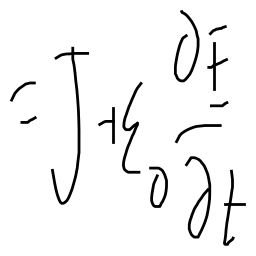 = J + ε₀ ∂E/∂t